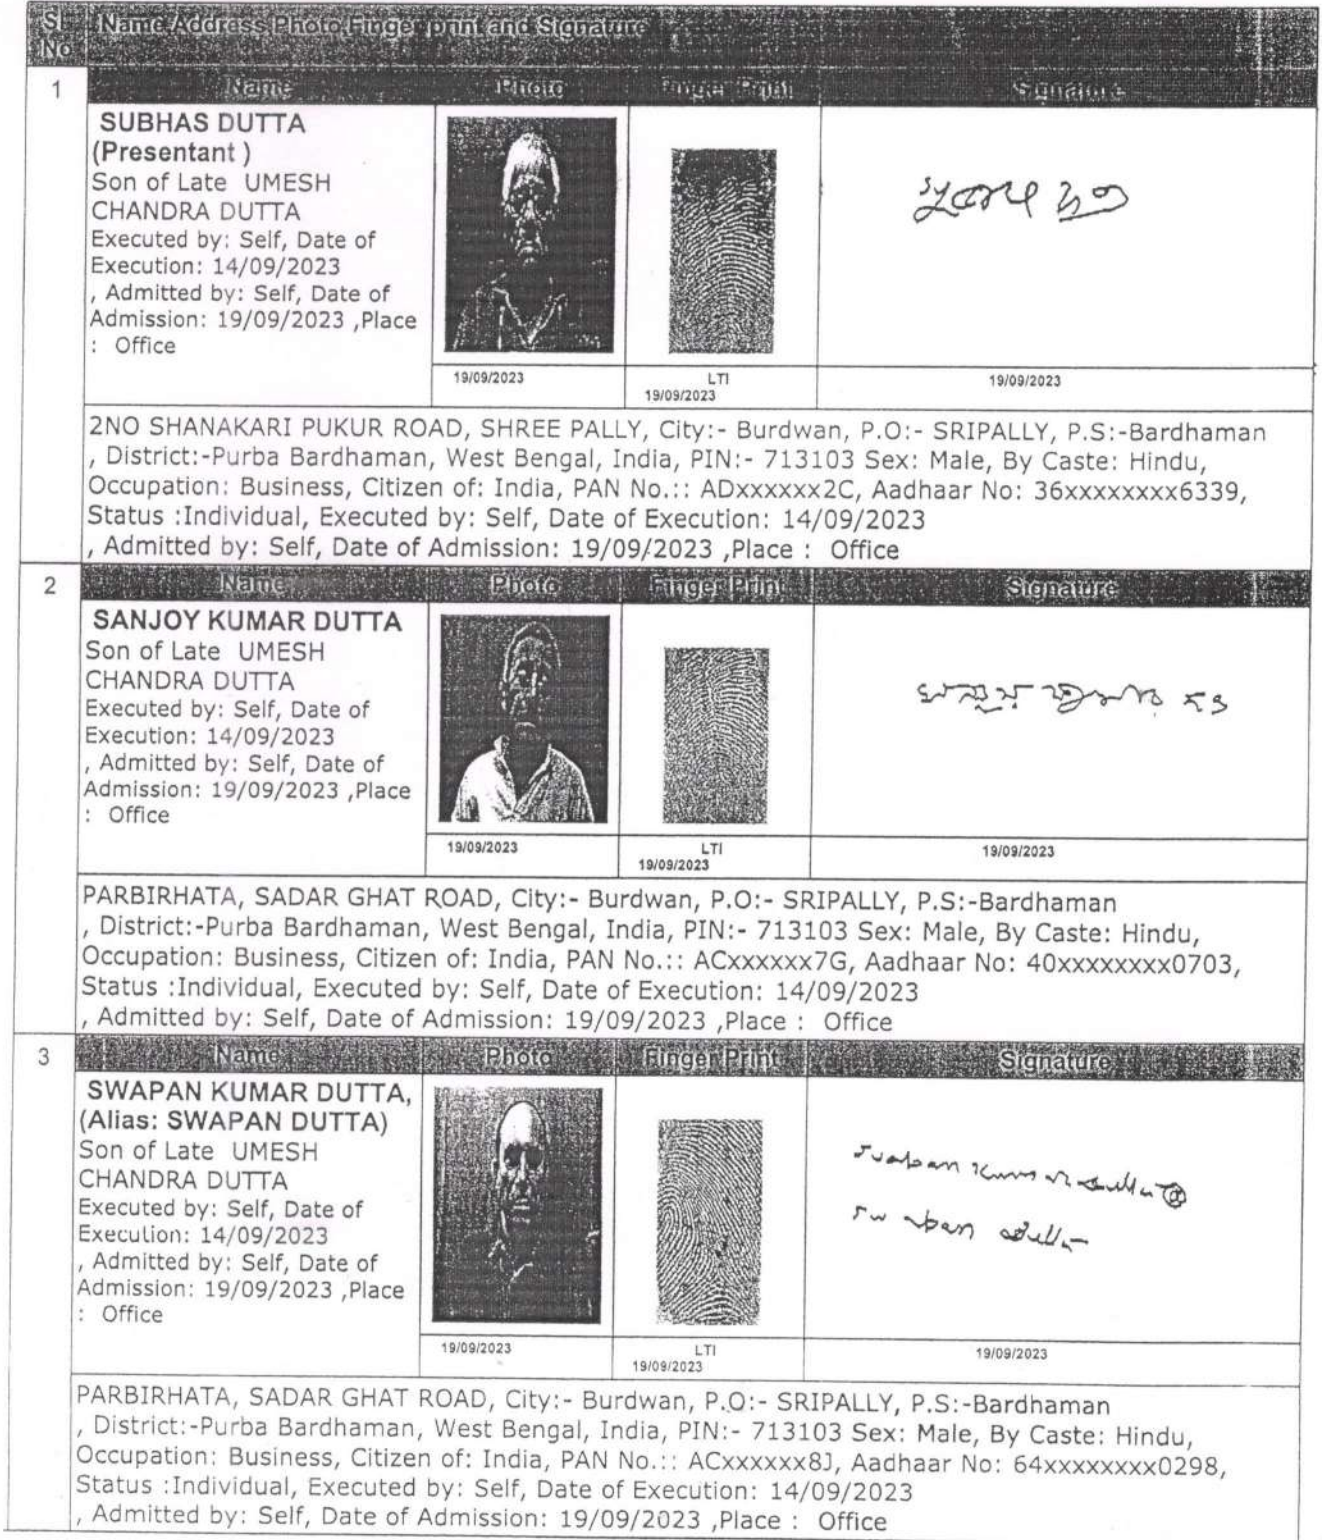 Sl No Name,Address,Photo,Finger print and Signature
1
Name Photo Finger Print Signature
SUBHAS DUTTA
(Presentant )
Son of Late UMESH
CHANDRA DUTTA
Executed by: Self, Date of
Execution: 14/09/2023
, Admitted by: Self, Date of
Admission: 19/09/2023 ,Place
: Office
সুভাষ দত্ত
19/09/2023
LTI
19/09/2023
19/09/2023
2NO SHANAKARI PUKUR ROAD, SHREE PALLY, City:- Burdwan, P.O:- SRIPALLY, P.S:-Bardhaman
, District:-Purba Bardhaman, West Bengal, India, PIN:- 713103 Sex: Male, By Caste: Hindu,
Occupation: Business, Citizen of: India, PAN No.:: ADxxxxxx2C, Aadhaar No: 36xxxxxxxx6339,
Status :Individual, Executed by: Self, Date of Execution: 14/09/2023
, Admitted by: Self, Date of Admission: 19/09/2023 ,Place : Office
2
Name Photo Finger Print Signature
SANJOY KUMAR DUTTA
Son of Late UMESH
CHANDRA DUTTA
Executed by: Self, Date of
Execution: 14/09/2023
, Admitted by: Self, Date of
Admission: 19/09/2023 ,Place
: Office
সঞ্জয় কুমার দত্ত
19/09/2023
LTI
19/09/2023
19/09/2023
PARBIRHATA, SADAR GHAT ROAD, City:- Burdwan, P.O:- SRIPALLY, P.S:-Bardhaman
, District:-Purba Bardhaman, West Bengal, India, PIN:- 713103 Sex: Male, By Caste: Hindu,
Occupation: Business, Citizen of: India, PAN No.:: ACxxxxxx7G, Aadhaar No: 40xxxxxxxx0703,
Status :Individual, Executed by: Self, Date of Execution: 14/09/2023
, Admitted by: Self, Date of Admission: 19/09/2023 ,Place : Office
3
Name Photo Finger Print Signature
SWAPAN KUMAR DUTTA,
(Alias: SWAPAN DUTTA)
Son of Late UMESH
CHANDRA DUTTA
Executed by: Self, Date of
Execution: 14/09/2023
, Admitted by: Self, Date of
Admission: 19/09/2023 ,Place
: Office
Swapan Kumar Dutta @
Swapan Dutta
19/09/2023
LTI
19/09/2023
19/09/2023
PARBIRHATA, SADAR GHAT ROAD, City:- Burdwan, P.O:- SRIPALLY, P.S:-Bardhaman
, District:-Purba Bardhaman, West Bengal, India, PIN:- 713103 Sex: Male, By Caste: Hindu,
Occupation: Business, Citizen of: India, PAN No.:: ACxxxxxx8J, Aadhaar No: 64xxxxxxxx0298,
Status :Individual, Executed by: Self, Date of Execution: 14/09/2023
, Admitted by: Self, Date of Admission: 19/09/2023 ,Place : Office